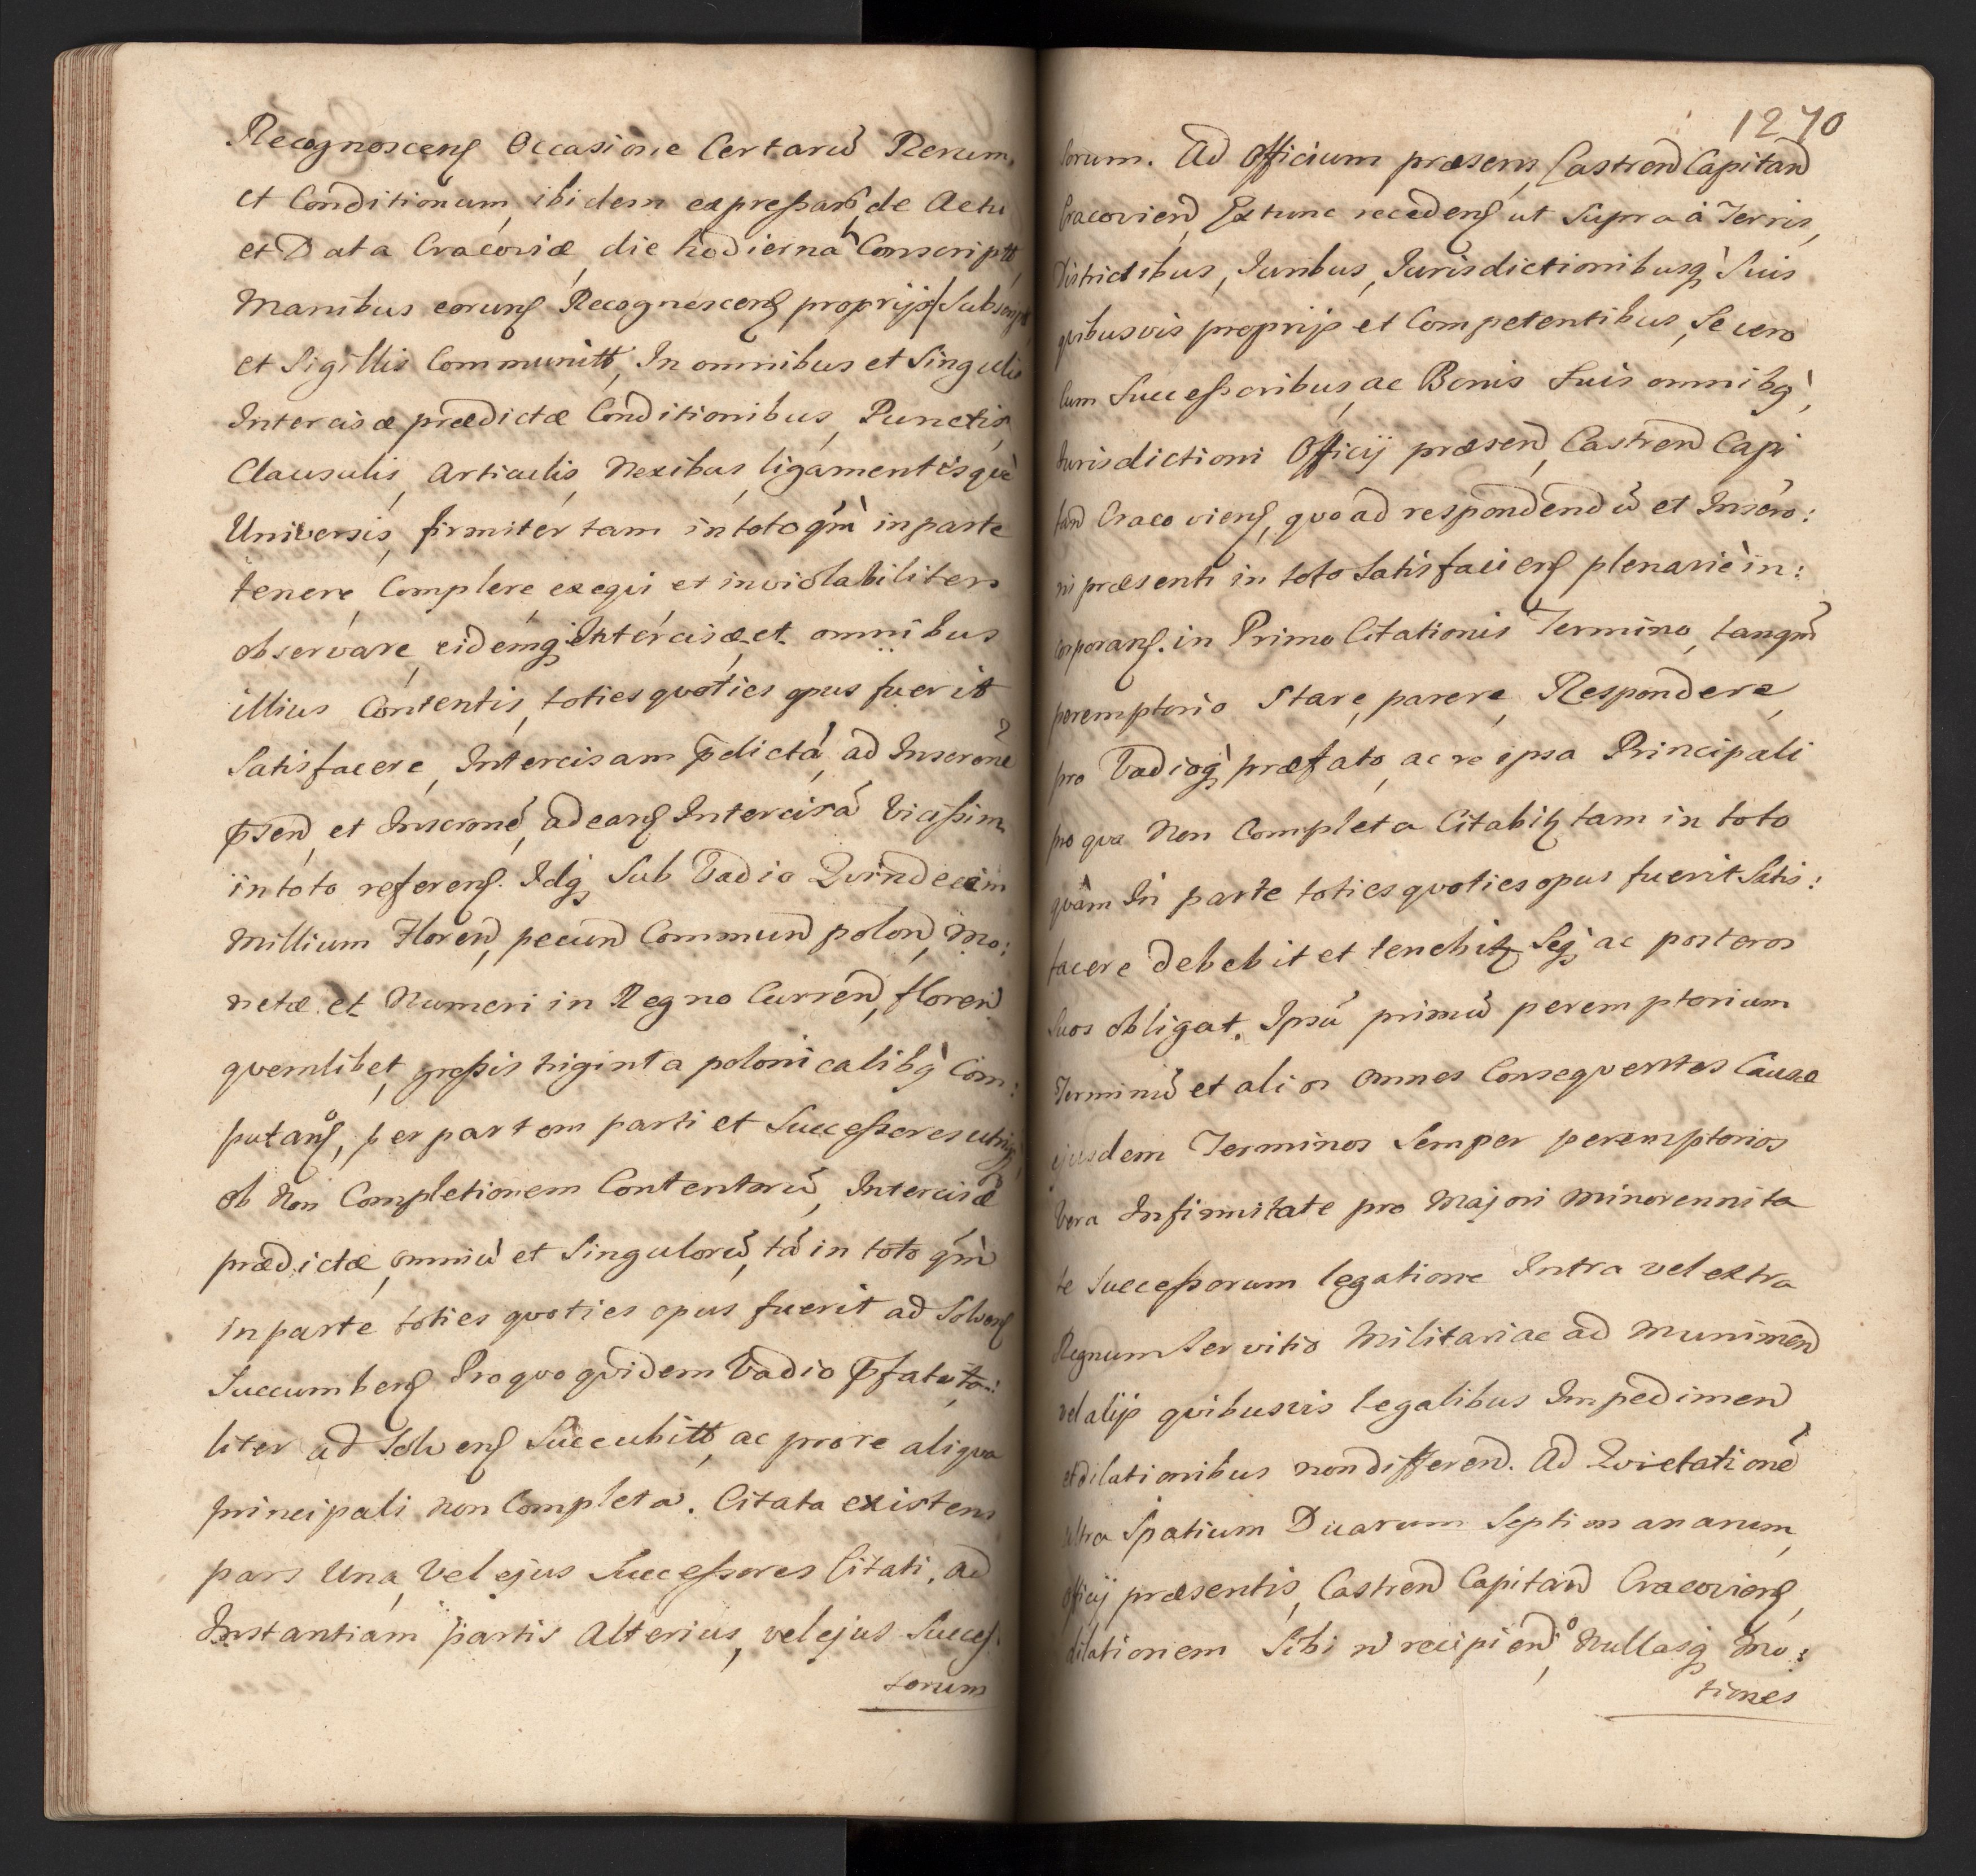 Recognoscens Occasione Certarũ Rerum,
et Conditionum, ibidem expressarũ, de Actu
et Data Cracoviæ, die hodierna Conscriptt,
Manibus eorund Recognoscens proprijs, Subscript
et Sigillis Communitt, In omnibus et Singulis
Intercisæ prædictæ Conditionibus, Punctis,
Clausulis, Articulis, Nexibus, ligamentisque
Universis, firmiter tam in toto qm̃ in parte
tenere, Complere, exeqvi et inviolabiliter
observare, eidemq Intercisæ, et omnibus
illius Contentis, toties qvoties opus fuerit
Satisfacere, Intercisam p̃dictã, ad Inscrone
p̃sen, et Inscronẽ, ad eand Intercisã Vicissim
in toto referens. Idq Sub Vadio Qvindecim
Millium Floren, pecun Commun polon, Mo:
netæ et Numeri in Regno Curren, floren
qvemlibet, grossis triginta polonicalibq Com:
putans, per partem parti et Successores utriq
ob Non Completionem Contentorũ, Intercisæ
prædictæ, omniũ et Singulorũ, tã in toto qm̃
in parte toties qvoties opus fuerit ad Solvens
Succumbens Pro qvo qvidem Vadio p̃fato, to:
liter ad Solvens Succubitt, ac pro re aliqva
principali non Completa. Citata existens
pars Una, Vel ejus Successores Citati, ad
Instantiam partis Alterius, vel ejus Succes:
sorum
1270
sorum. Ad Officium præsens, Castren Capitan
Cracovien, Ex tunc recedens ut Supra à Terris,
Districtibus, Juribus, Jurisdictionibusq Suis
qvibusvis proprijs et Competentibus, Se vero
Cum Successoribus, ac Bonis Suis omnibq,
Jurisdictioni Officij præsen, Castren Capi
tan Cracoviens, qvo ad respondendũ et Inscro:
ni præsenti in toto Satisfaciens plenariè in:
corporans. in Primo Citationis Termino, tanqm̃
peremptorio Stare, parere, Respondere,
pro Vadioq præfato, ac re ipsa Principali
pro qva Non Completa Citabit tam in toto
qvàm In parte toties qvoties opus fuerit Satis:
facere debebit et tenebit, Seq ac posteros
Suos obligat. Ipsũ primũ peremptorium
Terminũ et alios omnes Conseqventes Causæ
ejusdem Terminos Semper peremptorios
Vera Infirmitate pro Majori minorennita
te Successorum legatione Intra vel extra
Regnum Servitio Militari ac ad Munimen
vel alijs qvibusvis legalibus Impedimen
et dilationibus non differen. Ad Qvietationẽ
ultra Spatium Duarum Septimanarum,
Officij præsentis, Castren Capitan Cracoviens,
dilationem Sibi ñ recipien, Nullasq Mo:
tiones